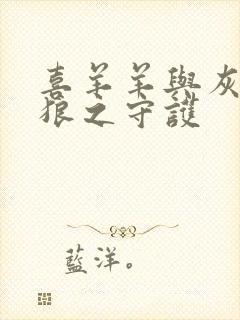 喜羊羊與灰
狼之守護
藍洋。